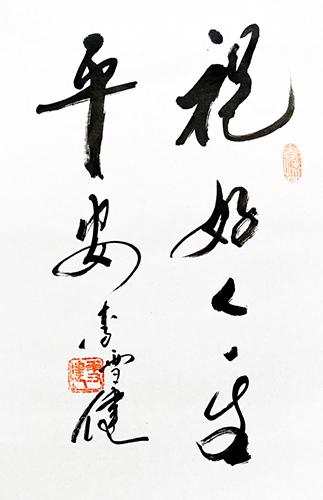 祝好人一生
平安
李雪健